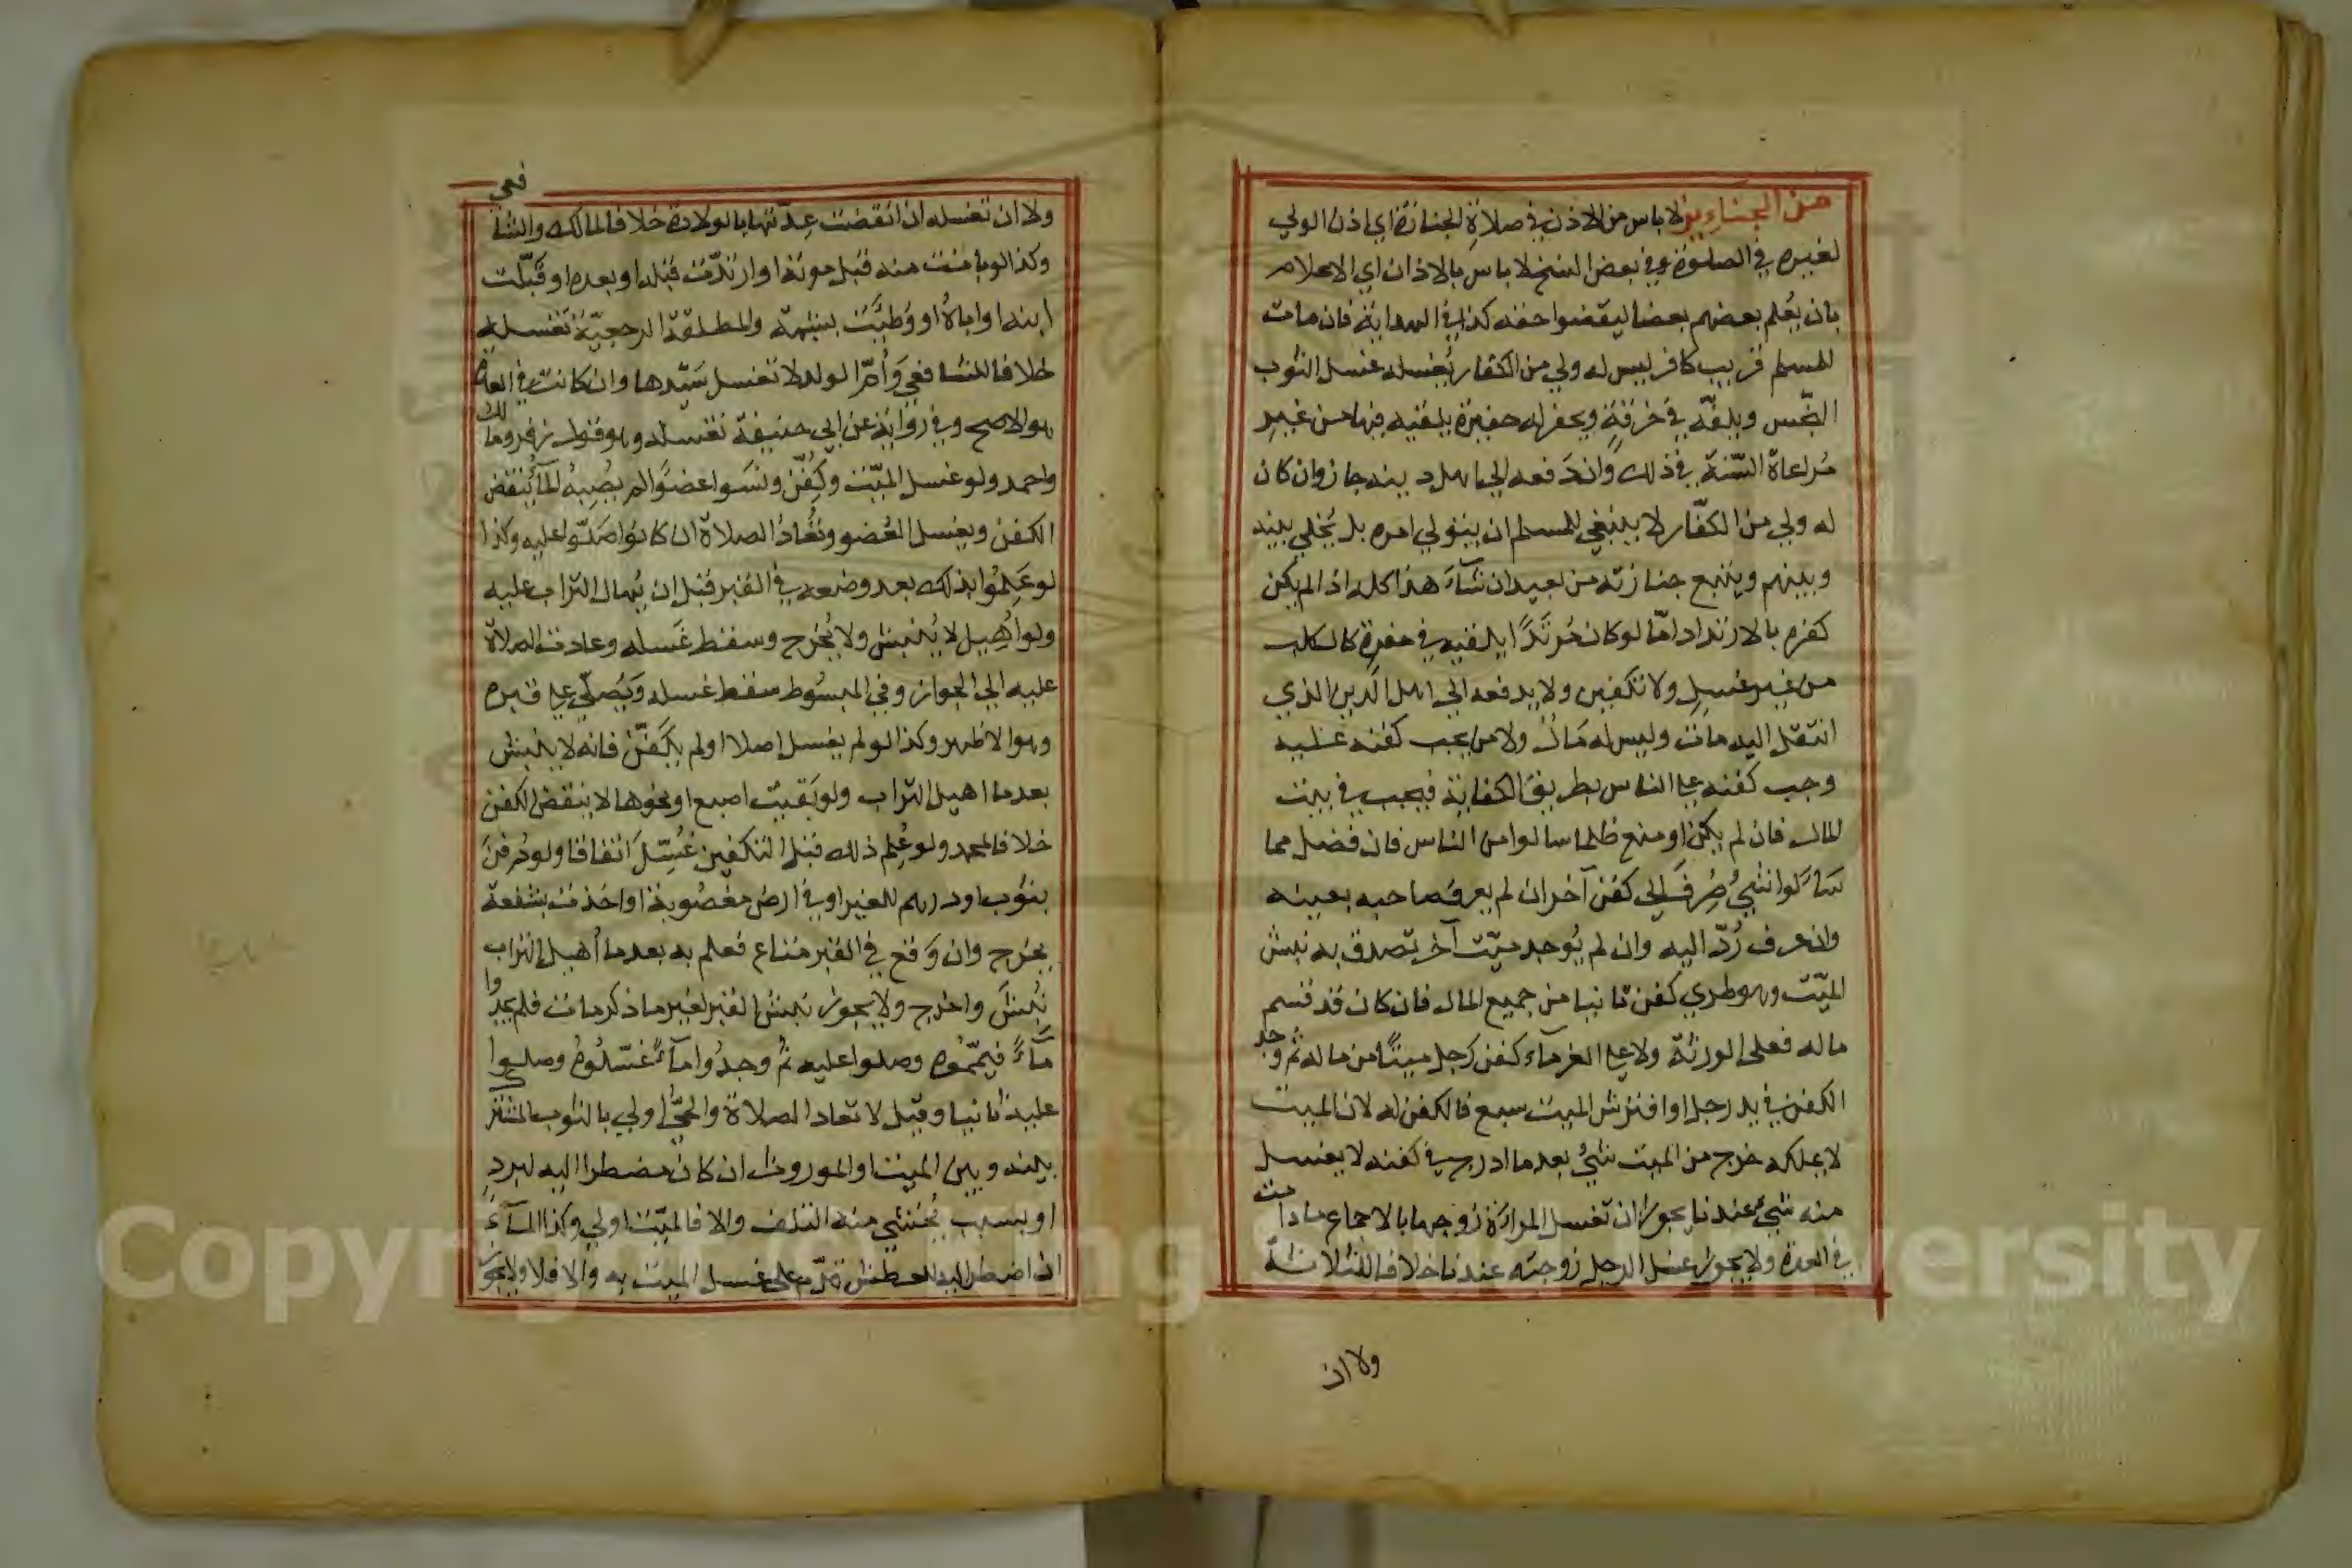 من الجنايز لا باس من الاذن في صلاة الجنازة اي اذن الولي
لغيره في الصلوة وفي بعض النسخ لا باس بالاذان اي الاعلام
بان يُعلم بعضهم بعضا ليقضوا حقه كذا في الهداية فان مات
للمسلم قريب كافر ليس له ولي من الكفار يُغسله غسل الثوب
النجّس ويلفّه في خرقةٍ ويحفر له حفيرة يلقيه فيها من غير
مُراعاة السّنة في ذلك وان دَفعه الي اهل دينه جاز وان كان
له ولي من الكفّار لا ينبغي للمسلم ان يتولي امره بل يُخلي بينه
وبينهم ويتبع جنازته من بعيد ان شآء هذا كله اذا لم يكن
كفره بالارتداد امّا لو كان مُرتَدًّا يلقيه في حفرة كالكلب
من غير غسلٍ ولا تكفين ولا يدفعه الي اهل الدين الذي
انتقل اليه مات وليس له مَالٌ ولا من يجب كفنه عليه
وجب كفنه علي الناس بطريق الكفاية فيجب في بيت
المال فان لم يكن او منع ظلما سالوا من الناس فان فضل مما
سَاَلوا شيٌ صُرِفَ الي كفن آخر ان لم يعرف صاحبه بعينه
وان عرف رُدّ اليه وان لم يُوجد ميّت آخر تصدق به نبش
الميّت وهو طري كفن ثانيا من جميع المال فان كان قد قسم
ماله فعلى الورثة ولا علي الغرمآء كفن رجل ميتًا من ماله ثم وجد
الكفن في يد رجل او افترش الميت سبع فالكفن له لان الميت
لا يملكه خرج من الميت شيٌ بعدما ادرج في كفنه لا يغسل
منه شيءٌ عندنا يجوز ان تغسل المراة زوجها بالاجماع ما دامت
في العدة ولا يجوز غسل الرجل زوجته عندنا خلافا للثلاثة
ولا ان
ولا ان تغسله ان انقضت عِدّتها بالولادة خلافا لمالك والشافعي
وكذا لو بانت منه قبل موته او ارتدّت قبله او بعده او قَبّلت
ابنه او اباهُ او وُطِئَت بشبهة والمطلقة الرجعيّة تغسله
خلافا للشافعي وَاُمّ الولد لا تغسل سَيّدها وان كانت في العدة
هو الاصح وفي رواية عن ابي حنيفة تغسله وهو قول زفر ومالك
واحمد ولو غسل الميّت وكُفّن ونسَوا عضوًا لم يصبهُ المآءُ ينقض
الكفن ويغسل العُضو وتُعادُ الصلاة ان كانوا صلّوا عليه وكذا
لو عَلِمُوا بذلك بعد وضعه في القبر قبل ان يُهال التراب عليه
ولو اُهِيل لا يُنبش ولا يُخرج وسقط غَسله وعادت الصلاة
عليه الي الجواز وفي المبسُوط سقط غسله وَيُصلّي علي قبره
وهو الاظهر وكذا لو لم يغسل اصلا او لم يكَفّن فانه لا ينبش
بعدما اهيل التراب ولو بَقيت اصبع او نحوها لا ينقض الكفن
خلافا لمحمد ولو عُلِم ذلك قبل التكفين غُسّلَ اتفاقا ولو دُفِنَ
بثوب او درهم للغير او في ارض مغصُوبة او اخذت بشفعة
يخرج وان وَقع في القبر متاع فعلم به بعدما اُهيل التراب
نُبِشَ واخرج ولا يجوز نبش القبر لغير ما ذكر مات فلم يجدُوا
مآءً فيمّموهُ وصلوا عليه ثم وجدُوا مآءً غسّلُوهُ وصلوا
عليه ثانيا وقيل لا تعاد الصلاة والحَيُّ اولي بالثوب المشترك
بينه وبين الميت او الموروث ان كان مضطرا اليه لبردٍ
او بسبب يُخشي منه التلف والا فالميّت اولي وكذا المآءُ
ان اضطر اليه للعطش قدّم على غسل الميت به والا فلا ولا يجوز